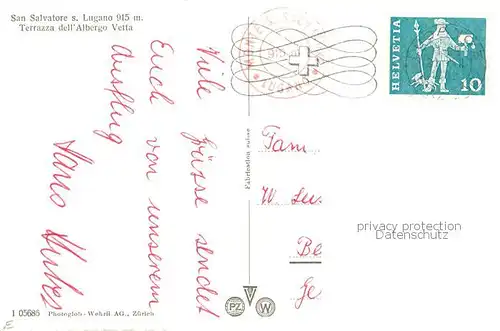 San Salvatore s. Lugano 915 m.
Terrazza dell'Albergo Vetta
Viele Grüsse sendet
Euch von unserem
Ausflug
Hans Huber
Fabrication suisse
HELVETIA
10
Fam
W. Lu.
Be
Ge
privacy protection
Datenschutz
1 05685 Photoglob-Wehrli AG., Zürich
PZ W